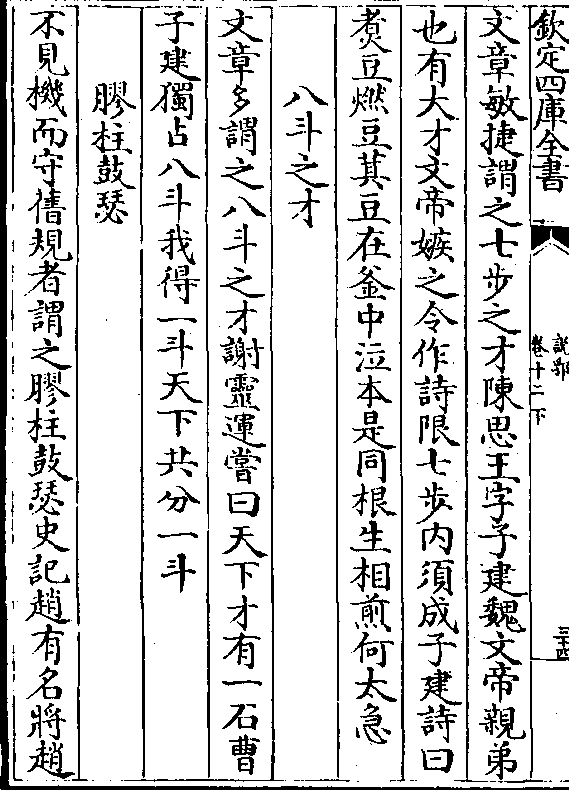 欽定四庫全書
說郛
卷十二下
三十四
文章敏捷謂之七步之才陳思王字子建魏文帝親弟
也有大才文帝嫉之令作詩限七步內須成子建詩曰
煑豆燃豆萁豆在釜中泣本是同根生相煎何太急
八斗之才
文章多謂之八斗之才謝靈運嘗曰天下才有一石曹
子建獨占八斗我得一斗天下共分一斗
膠柱鼓瑟
不見機而守舊規者謂之膠柱鼓瑟史記趙有名將趙